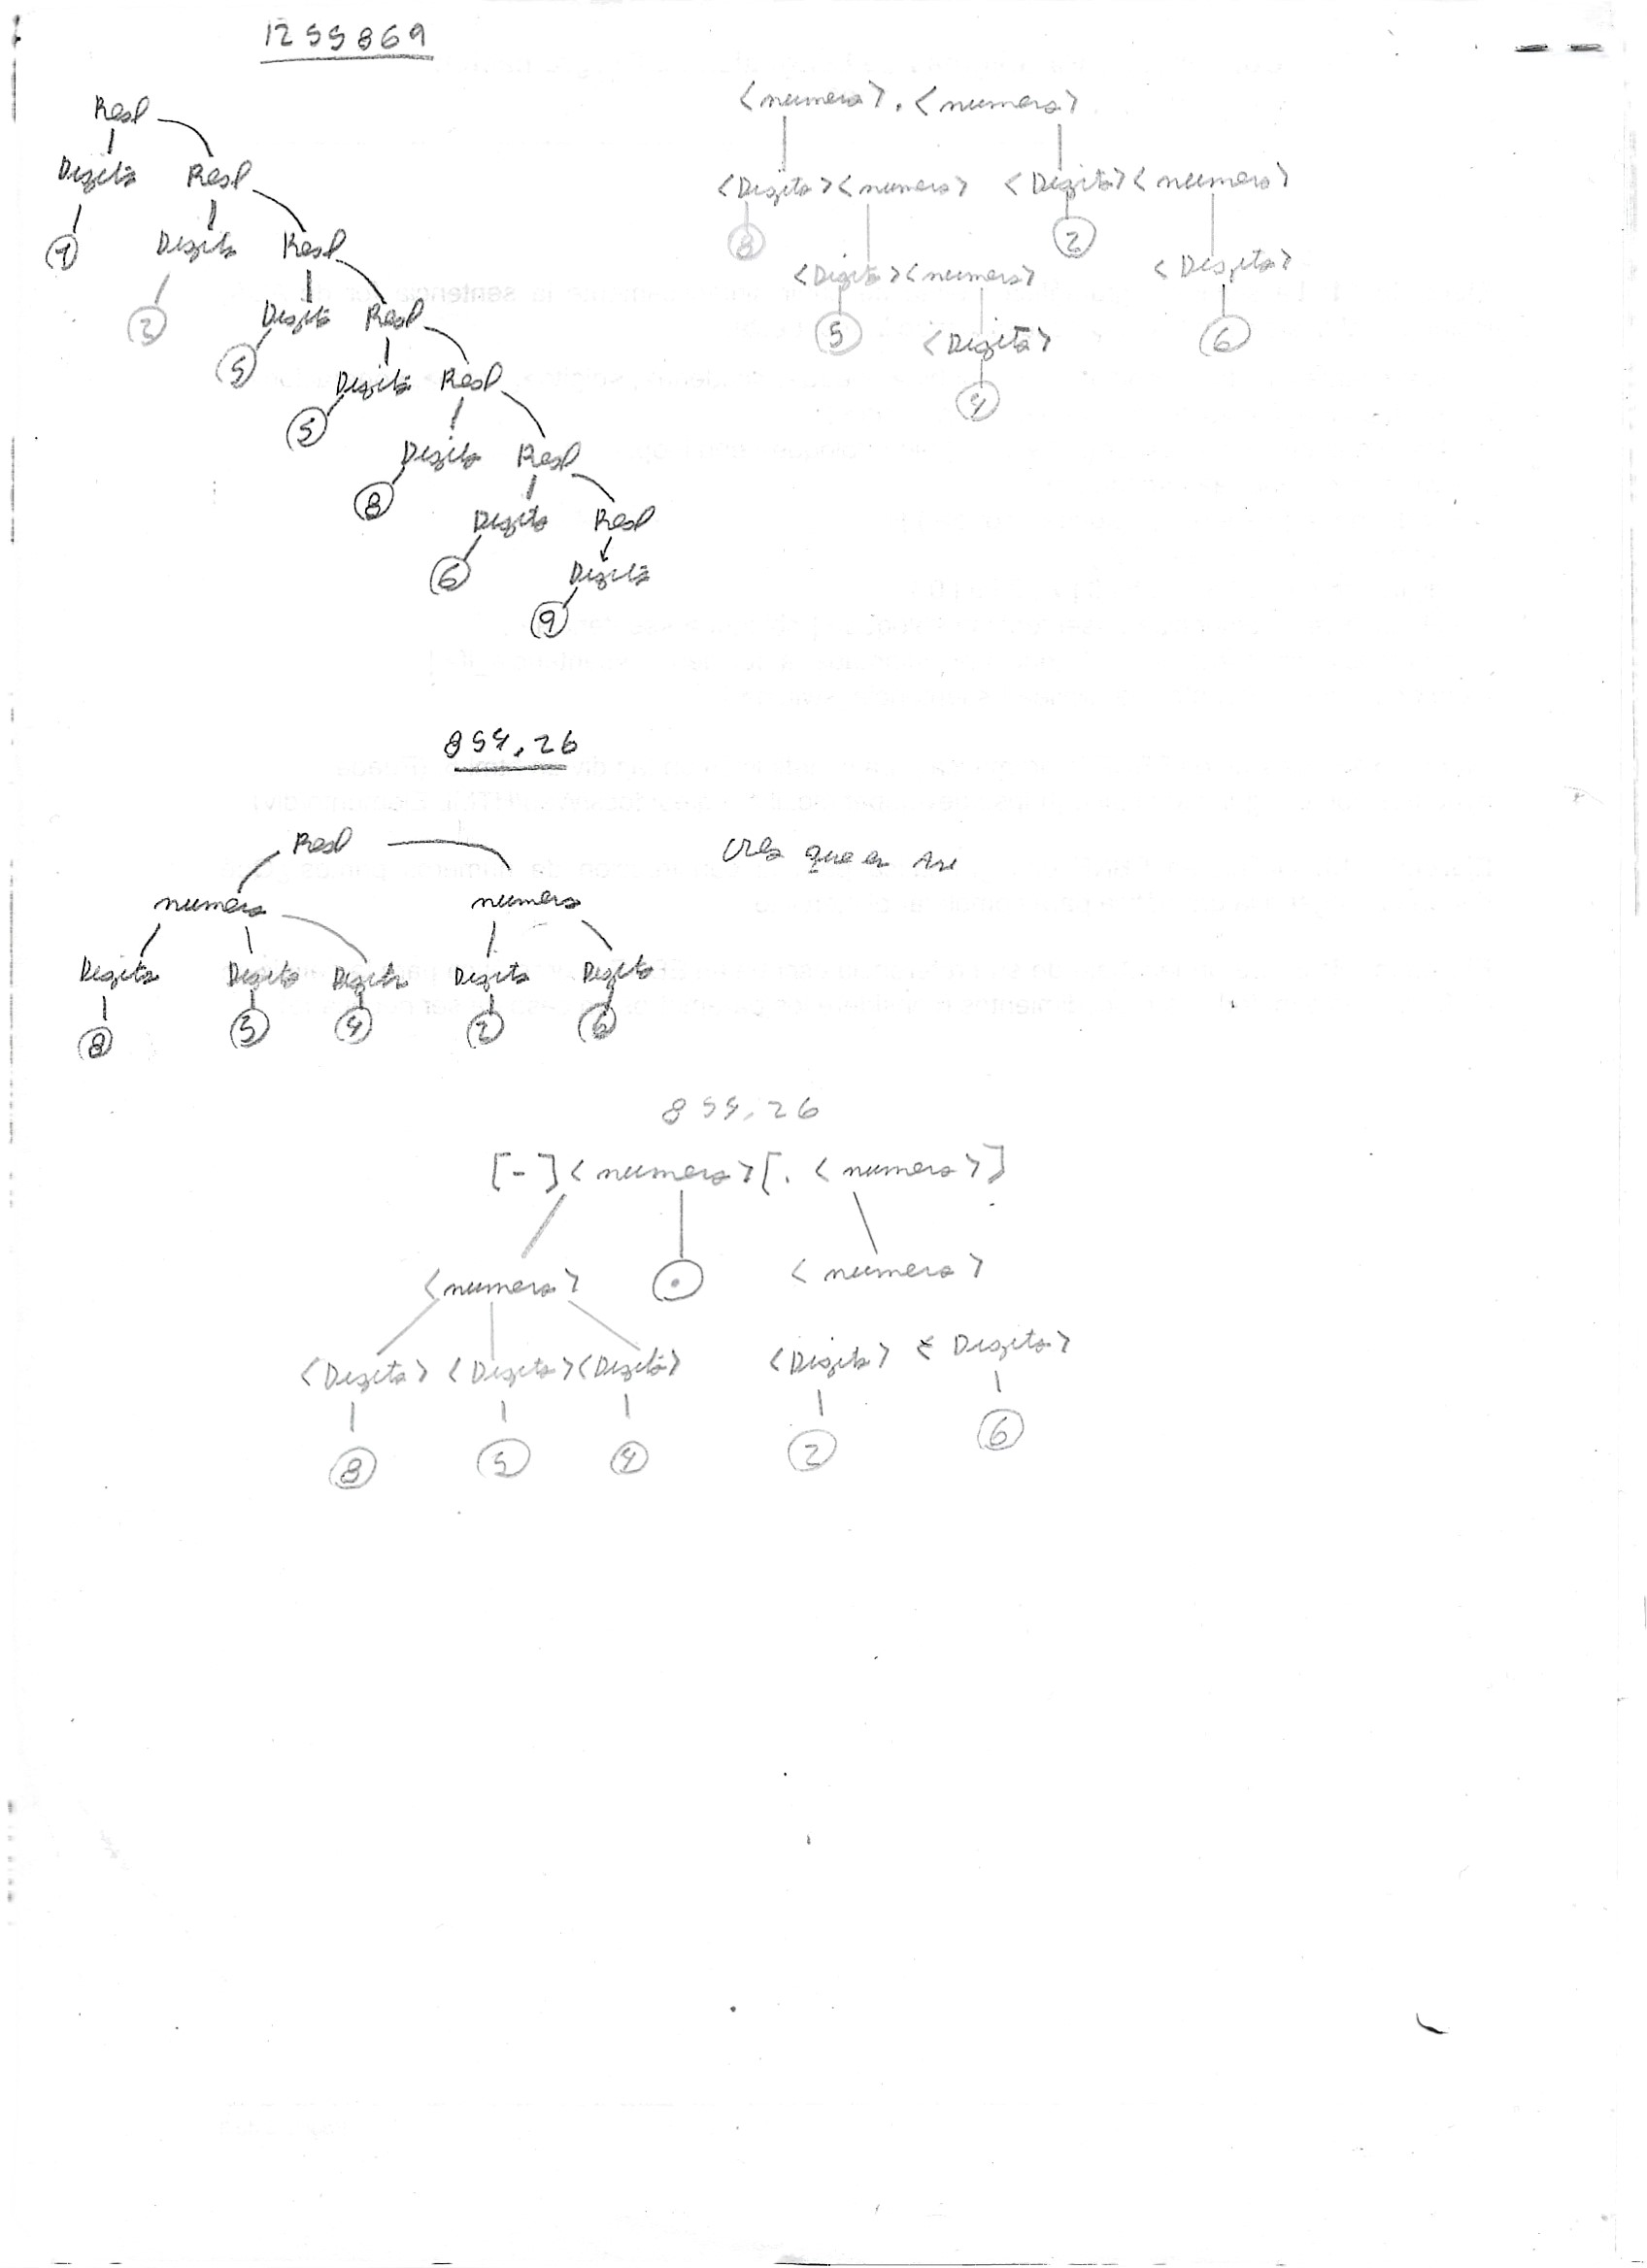 1255869
Real
Digito Real
1 Digito Real
2 Digito Real
5 Digito Real
5 Digito Real
8 Digito Real
6 Digito
9
<numero>.<numero>
<Digito><numero> <Digito><numero>
8 2
<Digito><numero> <Digito>
5 <Digito> 6
4
854.26
Real
creo que es asi
numero numero
Digito Digito Digito Digito Digito
8 5 4 2 6
854.26
[-]<numero>[.<numero>]
<numero> . <numero>
<Digito><Digito><Digito> <Digito><Digito>
8 5 4 2 6